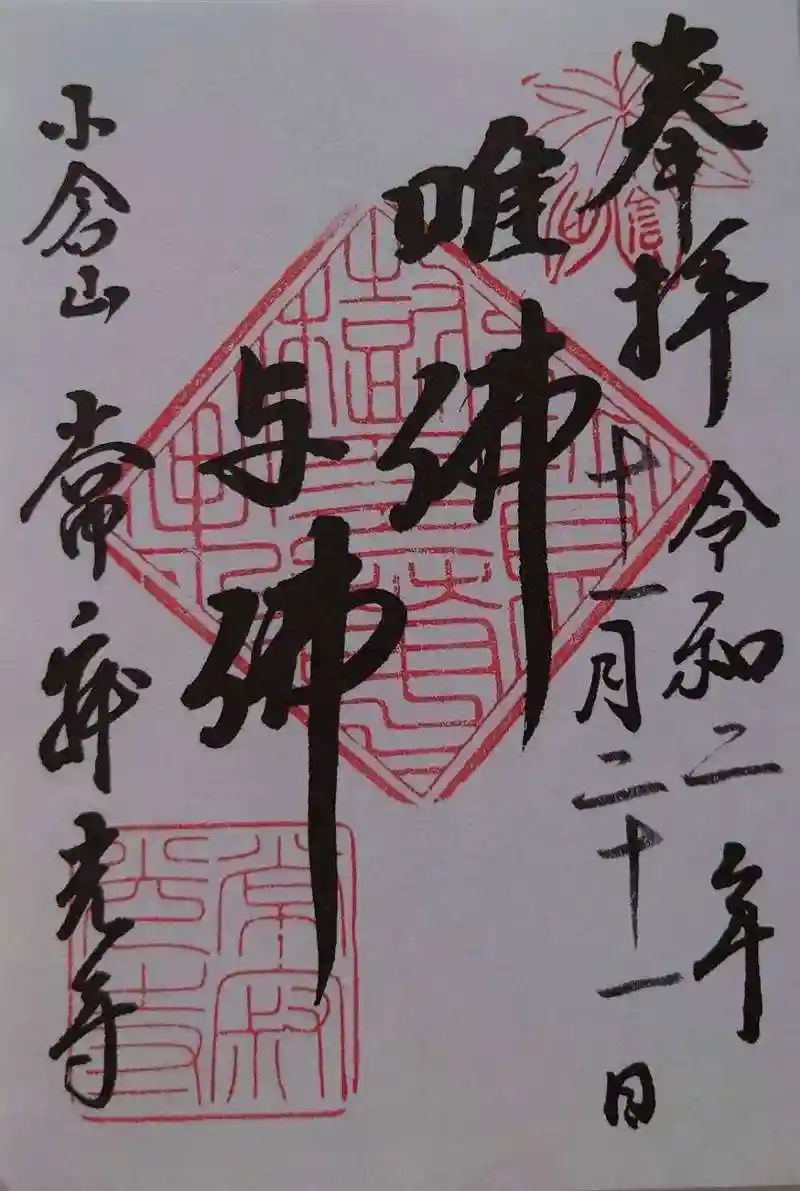 奉拝
令和二年
十一月二十一日
唯佛
与佛
小倉山 常寂光寺
信
常寂
光寺